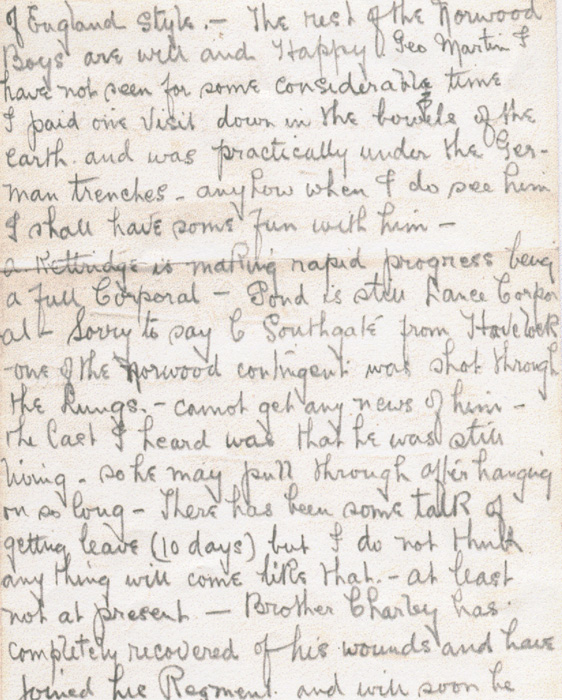 of England Style. — The rest of the Norwood
Boys are well and Happy. Geo Martin I
have not seen for some considerable time
I paid one visit down in the bowels of the
earth. and was practically under the Ger-
man trenches - anyhow when I do see him
I shall have some fun with him —
a Kettridge is making rapid progress being
a full Corporal — Pond is still Lance Corpor
al - Sorry to say C Southgate from Havelock
-one of the Norwood contingent was shot through
the Lungs. - cannot get any news of him -
the last I heard was that he was still
living - so he may pull through after hanging
on so long - There has been some talk of
getting leave (10 days) but I do not think
any thing will come like that. - at least
not at present — Brother Charley has
completely recovered of his wounds and have
joined his Regment. and will soon be